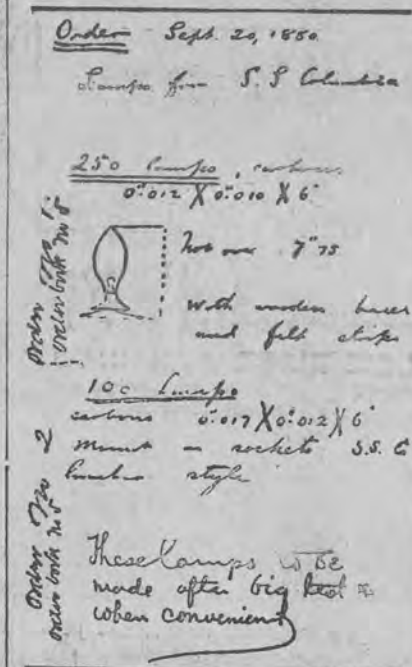 Order Sept. 20, 1880.
Lamps for S. S Columbia
250 lamps, carbons
0".012 X 0".010 X 6"
not over 7" 75
with wooden bases
and felt strips
Order No 1
order book No 5
100 Lamps
carbons 0".017 X 0".012 X 6"
mount in sockets S.S. C
style
Order No 2
order book No 5
These Lamps to be
made after big test &
when convenient